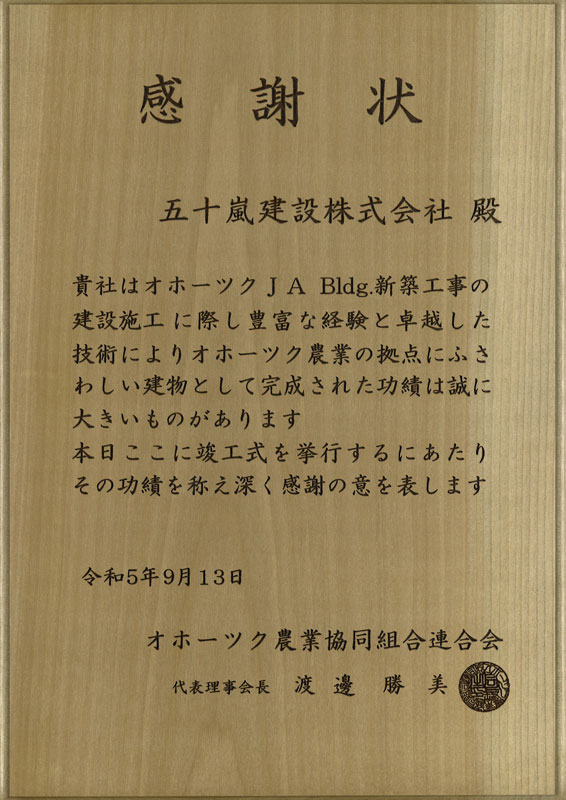 感謝状
五十嵐建設株式会社 殿
貴社はオホーツクJA Bldg.新築工事の
建設施工に際し豊富な経験と卓越した
技術によりオホーツク農業の拠点にふさ
わしい建物として完成された功績は誠に
大きいものがあります
本日ここに竣工式を挙行するにあたり
その功績を称え深く感謝の意を表します
令和5年9月13日
オホーツク農業協同組合連合会
代表理事会長 渡邊勝美